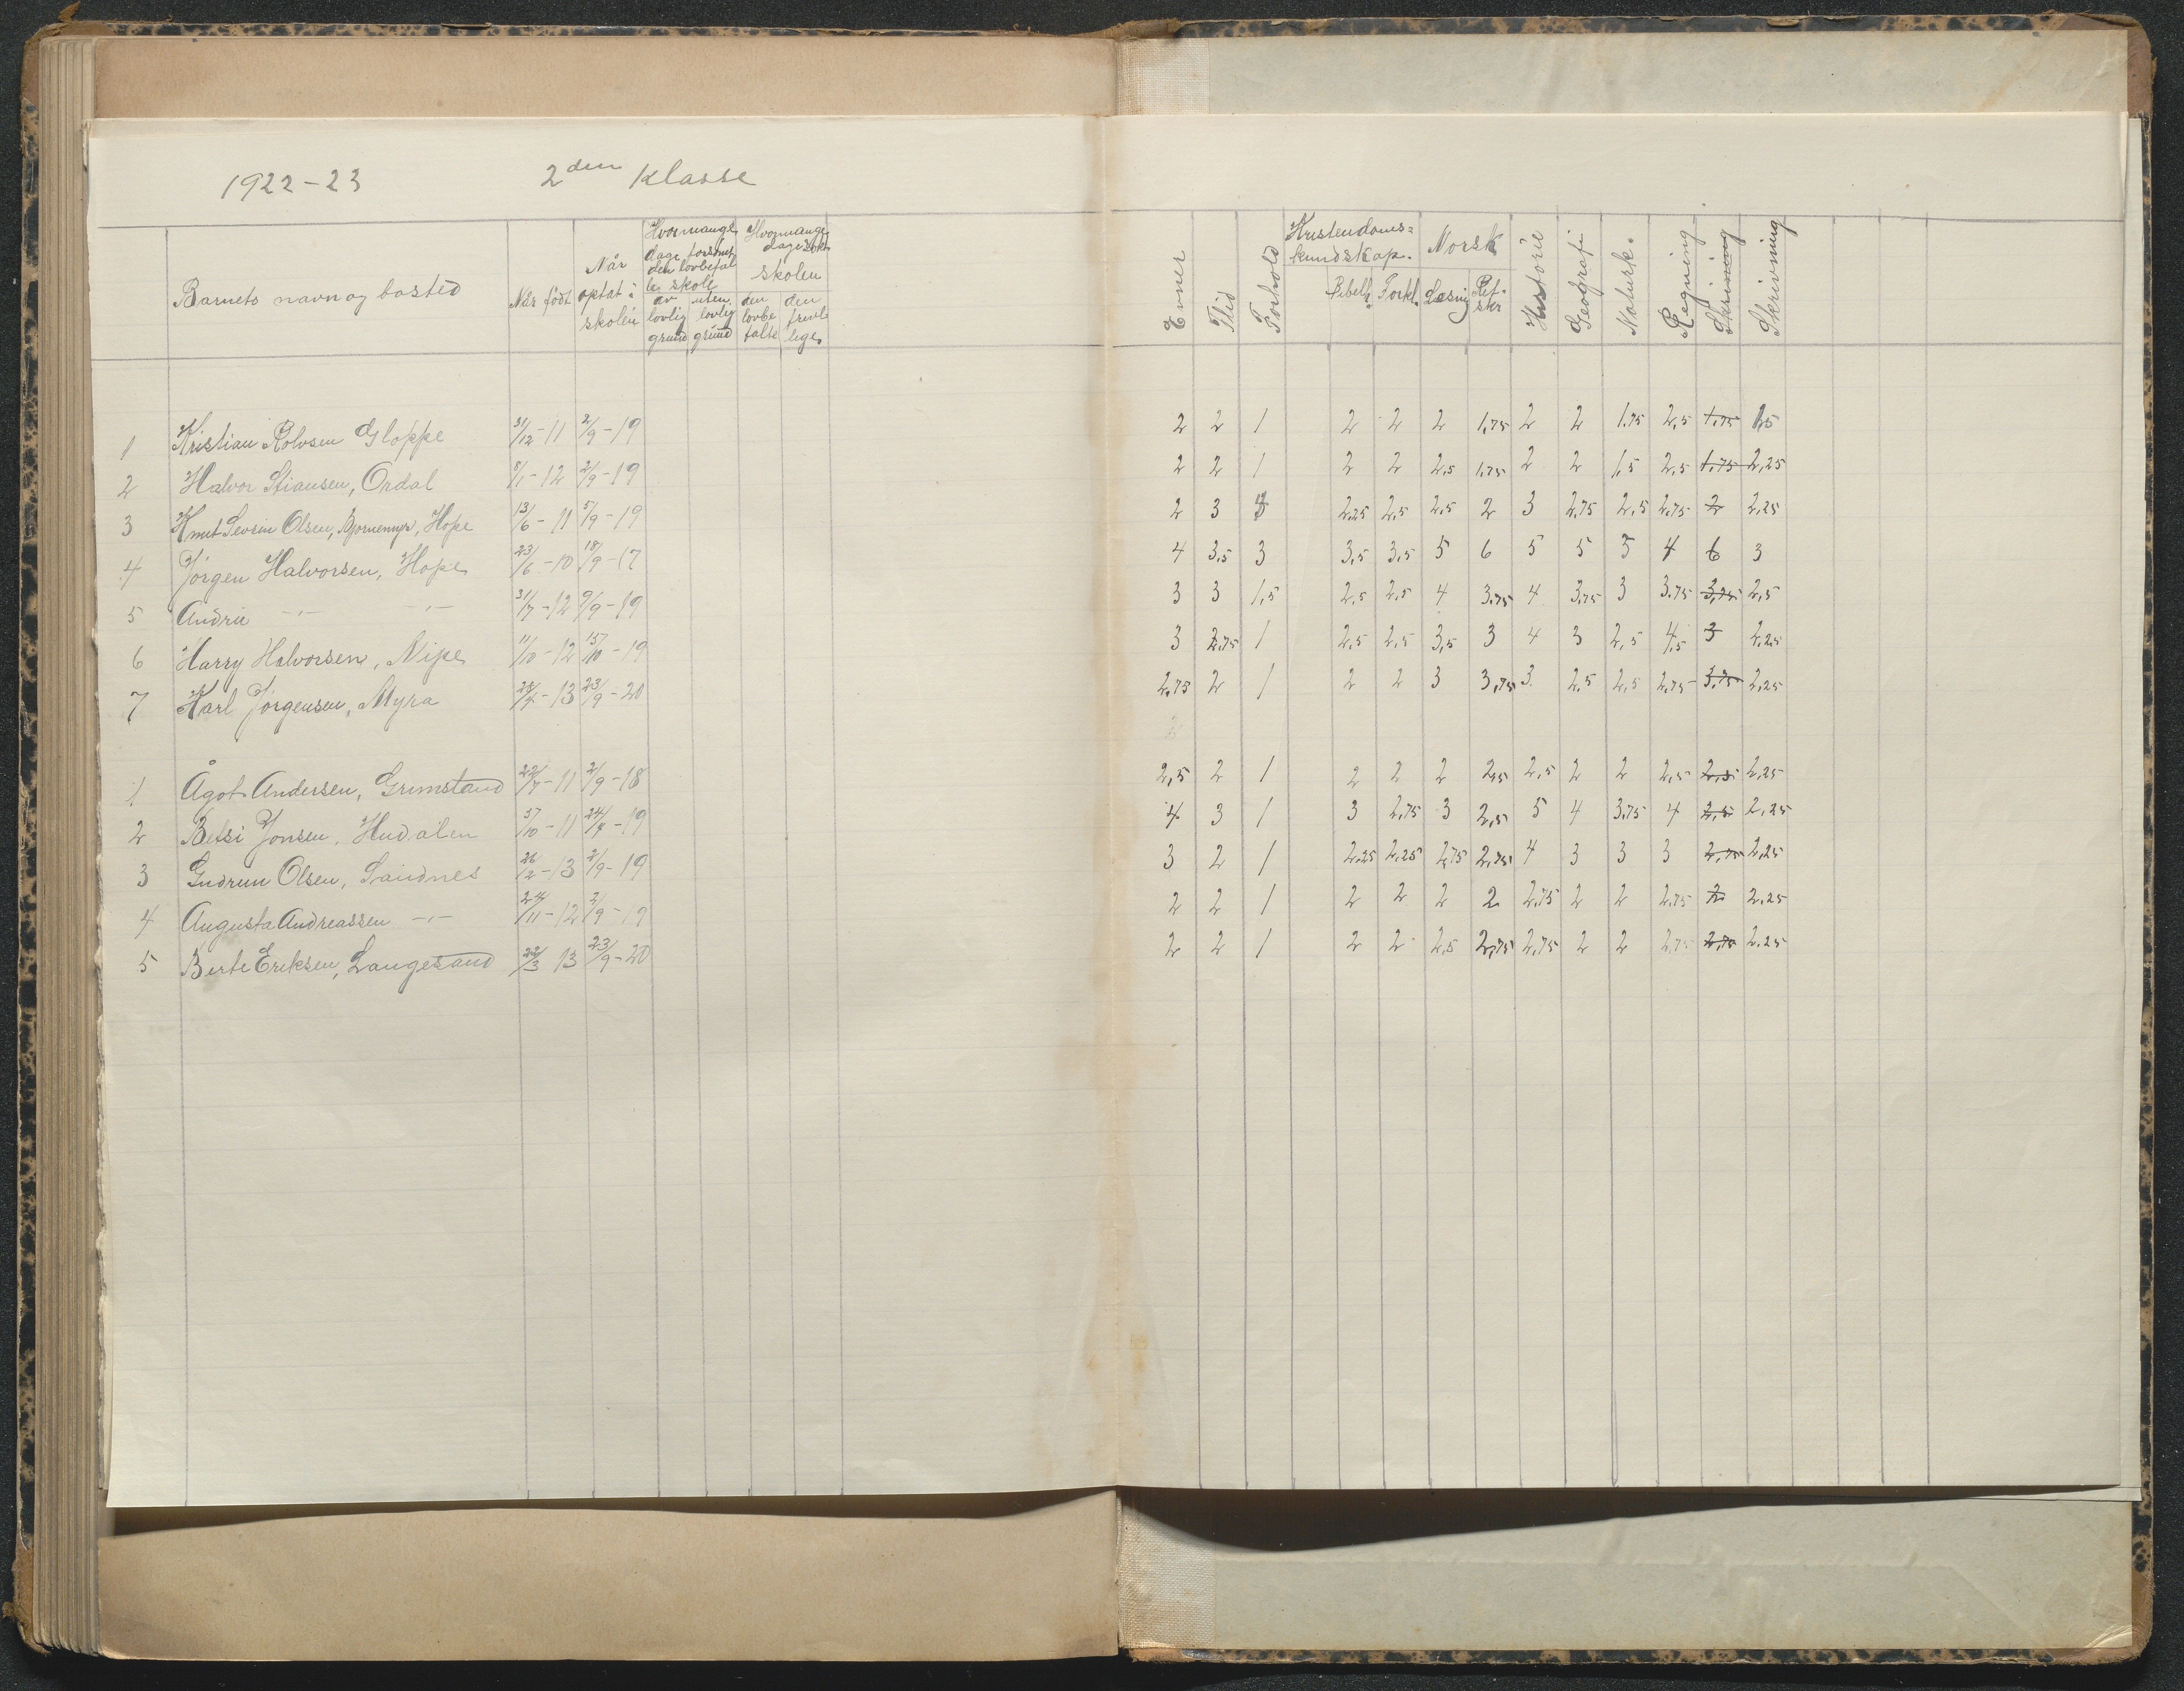 1922-23 2den Klasse
Barnets navn og bosted Når født Når optat i skolen Hvormange dage forsømt den lovbefalte skole av lovlig grund uten lovlig grund Hvormange dage søkt skolen den lovbefalte den frivillige
Evner Flid Forhold Kristendomskundskap. Bibelh. Forkl. Norsk Læsnig Ret-skr Historie Geografi Naturk. Regning Skrivning Skrivning
1 Kristian Rolvsen Gloppe 31/12-11 2/9-19 2 2 1 2 2 2 1,75 2 2 1,75 2,5 1,75 1,5
2 Halvor Stiansen, Ordal 8/1-12 2/9-19 2 2 1 2 2 2,5 1,75 2 2 1,5 2,5 1,75 2,25
3 Knut Sevrin Olsen, Bjørnemyr, Hope 13/6-11 5/9-19 2 3 2,25 2,5 2,5 2 3 2,75 2,5 2,75 2 2,25
4 Jørgen Halvorsen, Hope 23/6-10 18/9-17 4 3,5 3 3,5 3,5 5 6 5 5 5 4 6 3
5 Andrie -"- -"- 31/7-12 9/9-19 3 3 1,5 2,5 2,5 4 3,75 4 3,75 3 3,75 3,75 2,5
6 Harry Halvorsen, Nipe 11/10-12 15/10-19 3 2,75 1 2,5 2,5 3,5 3 4 3 2,5 4,5 3 2,25
7 Karl Jørgensen, Myra -13 23/9-20 2,75 2 1 2 2 3 3,75 3 2,5 2,5 2,75 3,75 2,25
1 Ågot Andersen, Grimstand 22/7-11 2/9-18 2,5 2 1 2 2 2 2,5 2,5 2 2 2,5 2,5 2,25
2 Betsi Jonsen, Hudalen 5/10-11 -19 4 3 1 3 2,75 3 2,5 5 4 3,75 4 2,5 2,25
3 Gudrun Olsen, Sandnes 26/2-13 2/9-19 3 2 1 2,25 2,25 2,75 2,75 4 3 3 3 2,75 2,25
4 Augusta Andreassen -"- 24/11-12 2/9-19 2 2 1 2 2 2 2 2,75 2 2 2,75 2 2,25
5 Berte Eriksen, Langesand 22/3 13 23/9-20 2 2 1 2 2 2,5 2,75 2,75 2 2 2,75 2,75 2,25